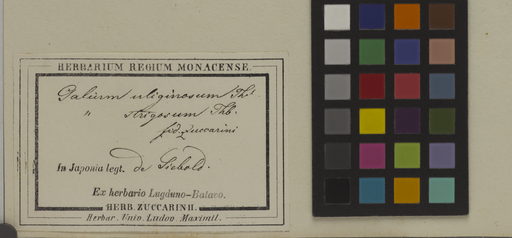 HERBARIUM REGIUM MONACENSE.
Galium uliginosum Thb.
" strigosum Thb.
fid. Zuccarini
In Japonia legt. de Siebold.
Ex herbario Lugduno-Batavo.
HERB. ZUCCARINII.
Herbar. Univ. Ludov. Maximil.